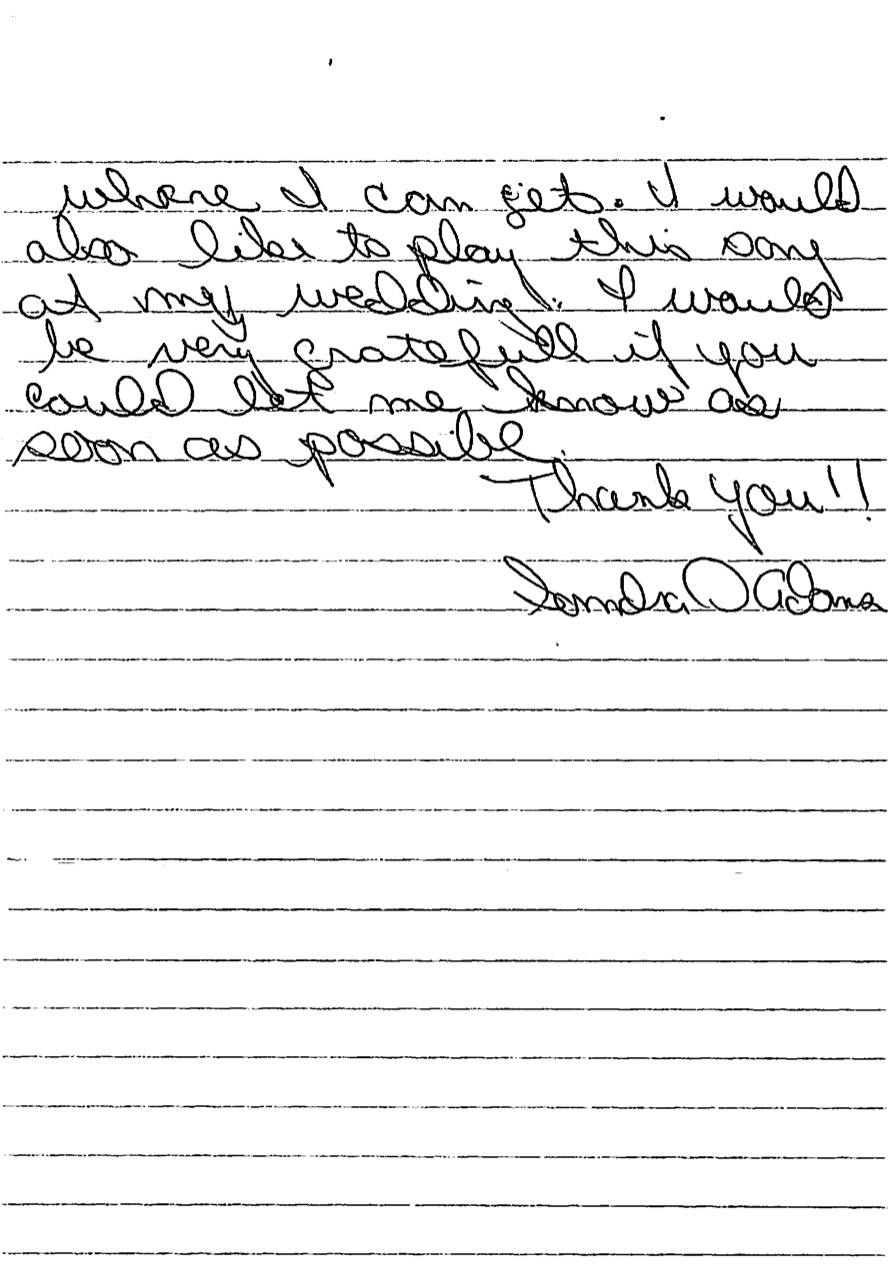 where I can get. I would
also like to play this song
at my wedding. I would
be very gratefull if you
could let me know as
soon as possible.
Thank you!!
Sandra D Adams